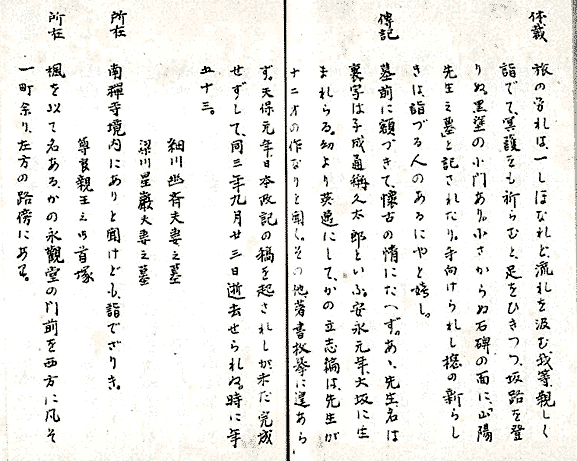 体裁
旅のつかれは、一しほなれど、流れを汲む我等、親しく
詣でて、冥護をも祈らむと、足をひきつつ、坂路を登
りぬ。黒塗の小門あり。小さからぬ石碑の面に、山陽
先生之墓と記されたり。手向けられし樒の新らし
きは、詣づる人のあるにやと嬉し。
傳記
墓前に額づきて、懐古の情にたへず。あゝ、先生、名は
襄、字は子成、通稱久太郎といふ。安永元年、大坂に生
まれらる。幼より英邁にして、かの立志編は、先生が
十二才の作なりと聞く。その他著書枚擧に遑あら
ず。天保元年日本政記の稿を起されしが、未だ完成
せずして、同三年九月廿三日逝去せられぬ。時に年
五十三。
細川幽斉夫妻之墓
梁川星巌夫妻之墓
所在
南禪寺境内にありと聞けども、詣でざりき。
尊良親王之御首塚
所在
楓を以て名ある、かの永觀堂の門前を西方に凡そ
一町余り、左方の路傍にある。